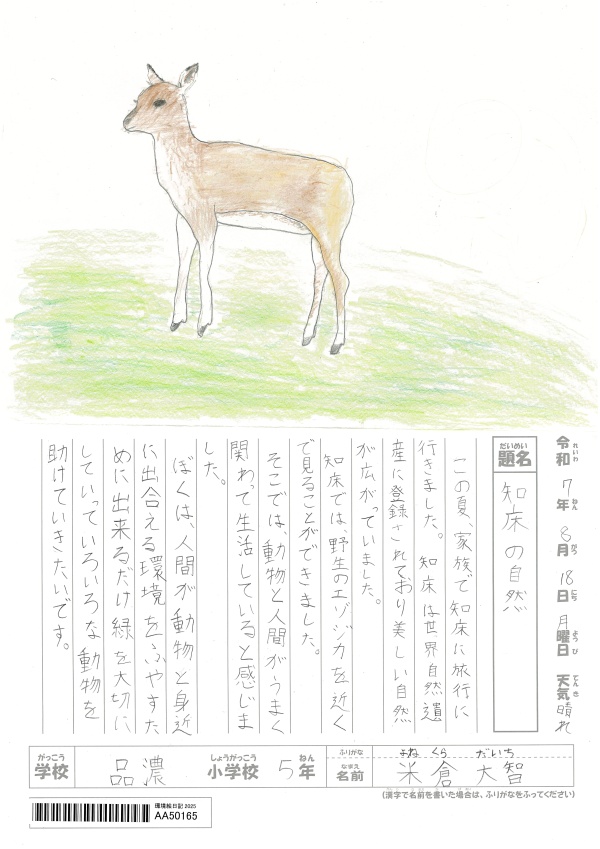 令和7年8月18日月曜日 天気晴れ
れいわ ねん がつ にち ようび てんき
だいめい
題名 知床の自然
この夏、家族で知床に旅行に
行きました。知床は世界自然遺
産に登録されており美しい自然
が広がっていました。
知床では、野生のエゾジカを近く
で見ることができました。
そこでは、動物と人間がうまく
関わって生活していると感じま
した。
ぼくは、人間が動物と身近
に出合える環境をふやすた
めに出来るだけ緑を大切に
していっていろいろな動物を
助けていきたいです。
がっこう しょうがっこう ねん
学校 品濃 小学校 5年
ふりがな よねくら だいち
なまえ
名前 米倉大智
(漢字で名前を書いた場合は、ふりがなをふってください)
環境絵日記2025
AA50165